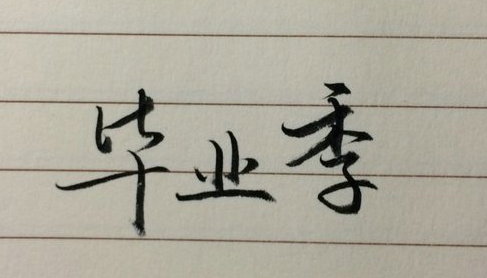 毕业季